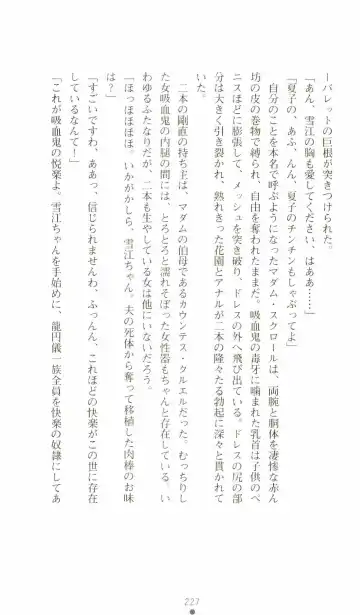 ーバレットの巨根が突きつけられた。
「あん、雪江の胸も愛してください。はああ……」
「夏子の、あふ、んん、夏子のチンチンもしゃぶってよ」
自分のことを本名で呼ぶようになったマダム・スクロールは、両腕と胴体を凄惨な赤ん
坊の皮の巻物で縛られ、自由を奪われたままだ。吸血鬼の毒牙に噛まれた乳首は子供のペ
ニスほどに膨張して、メッシュを突き破り、ドレスの外へ飛び出ている。ドレスの尻の部
分は大きく引き裂かれ、熟れきった花園とアナルが二本の隆々たる勃起に深々と貫かれて
いた。
二本の剛直の持ち主は、マダムの伯母であるカウンテス・クルエルだった。むっちりし
た女吸血鬼の内腿の間には、とろとろと濡れそぼった女性器もちゃんと存在している。い
わゆるふたなりだが、二本も生やしている女は他にいないだろう。
「ほっほほほほ。いかがかしら、雪江ちゃん。夫の死体から奪って移植した肉棒のお味
は？」
「すごいですわ、ああっ、信じられませんわ、ふっんん、これほどの快楽がこの世に存在
しているなんて！」
「これが吸血鬼の悦楽よ。雪江ちゃんを手始めに、龍円儀一族全員を快楽の奴隷にしてあ
227